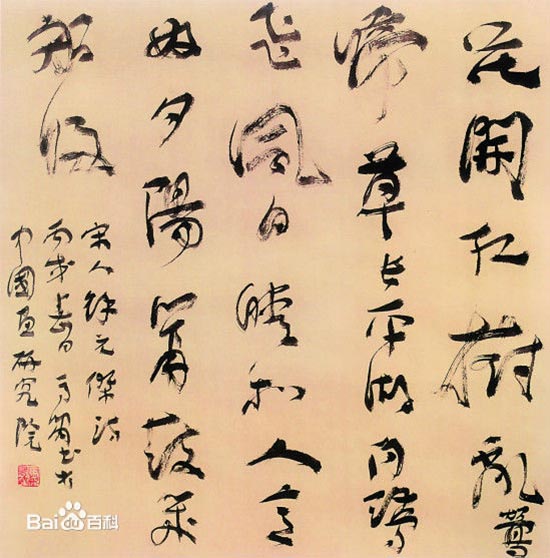 花開紅樹亂鶯
啼草長平湖白鷺
飛風日晴和人意
好夕陽簫鼓幾
船歸
宋人徐元傑詩
丙戌春日書於
中國畫研究院
Bai百科